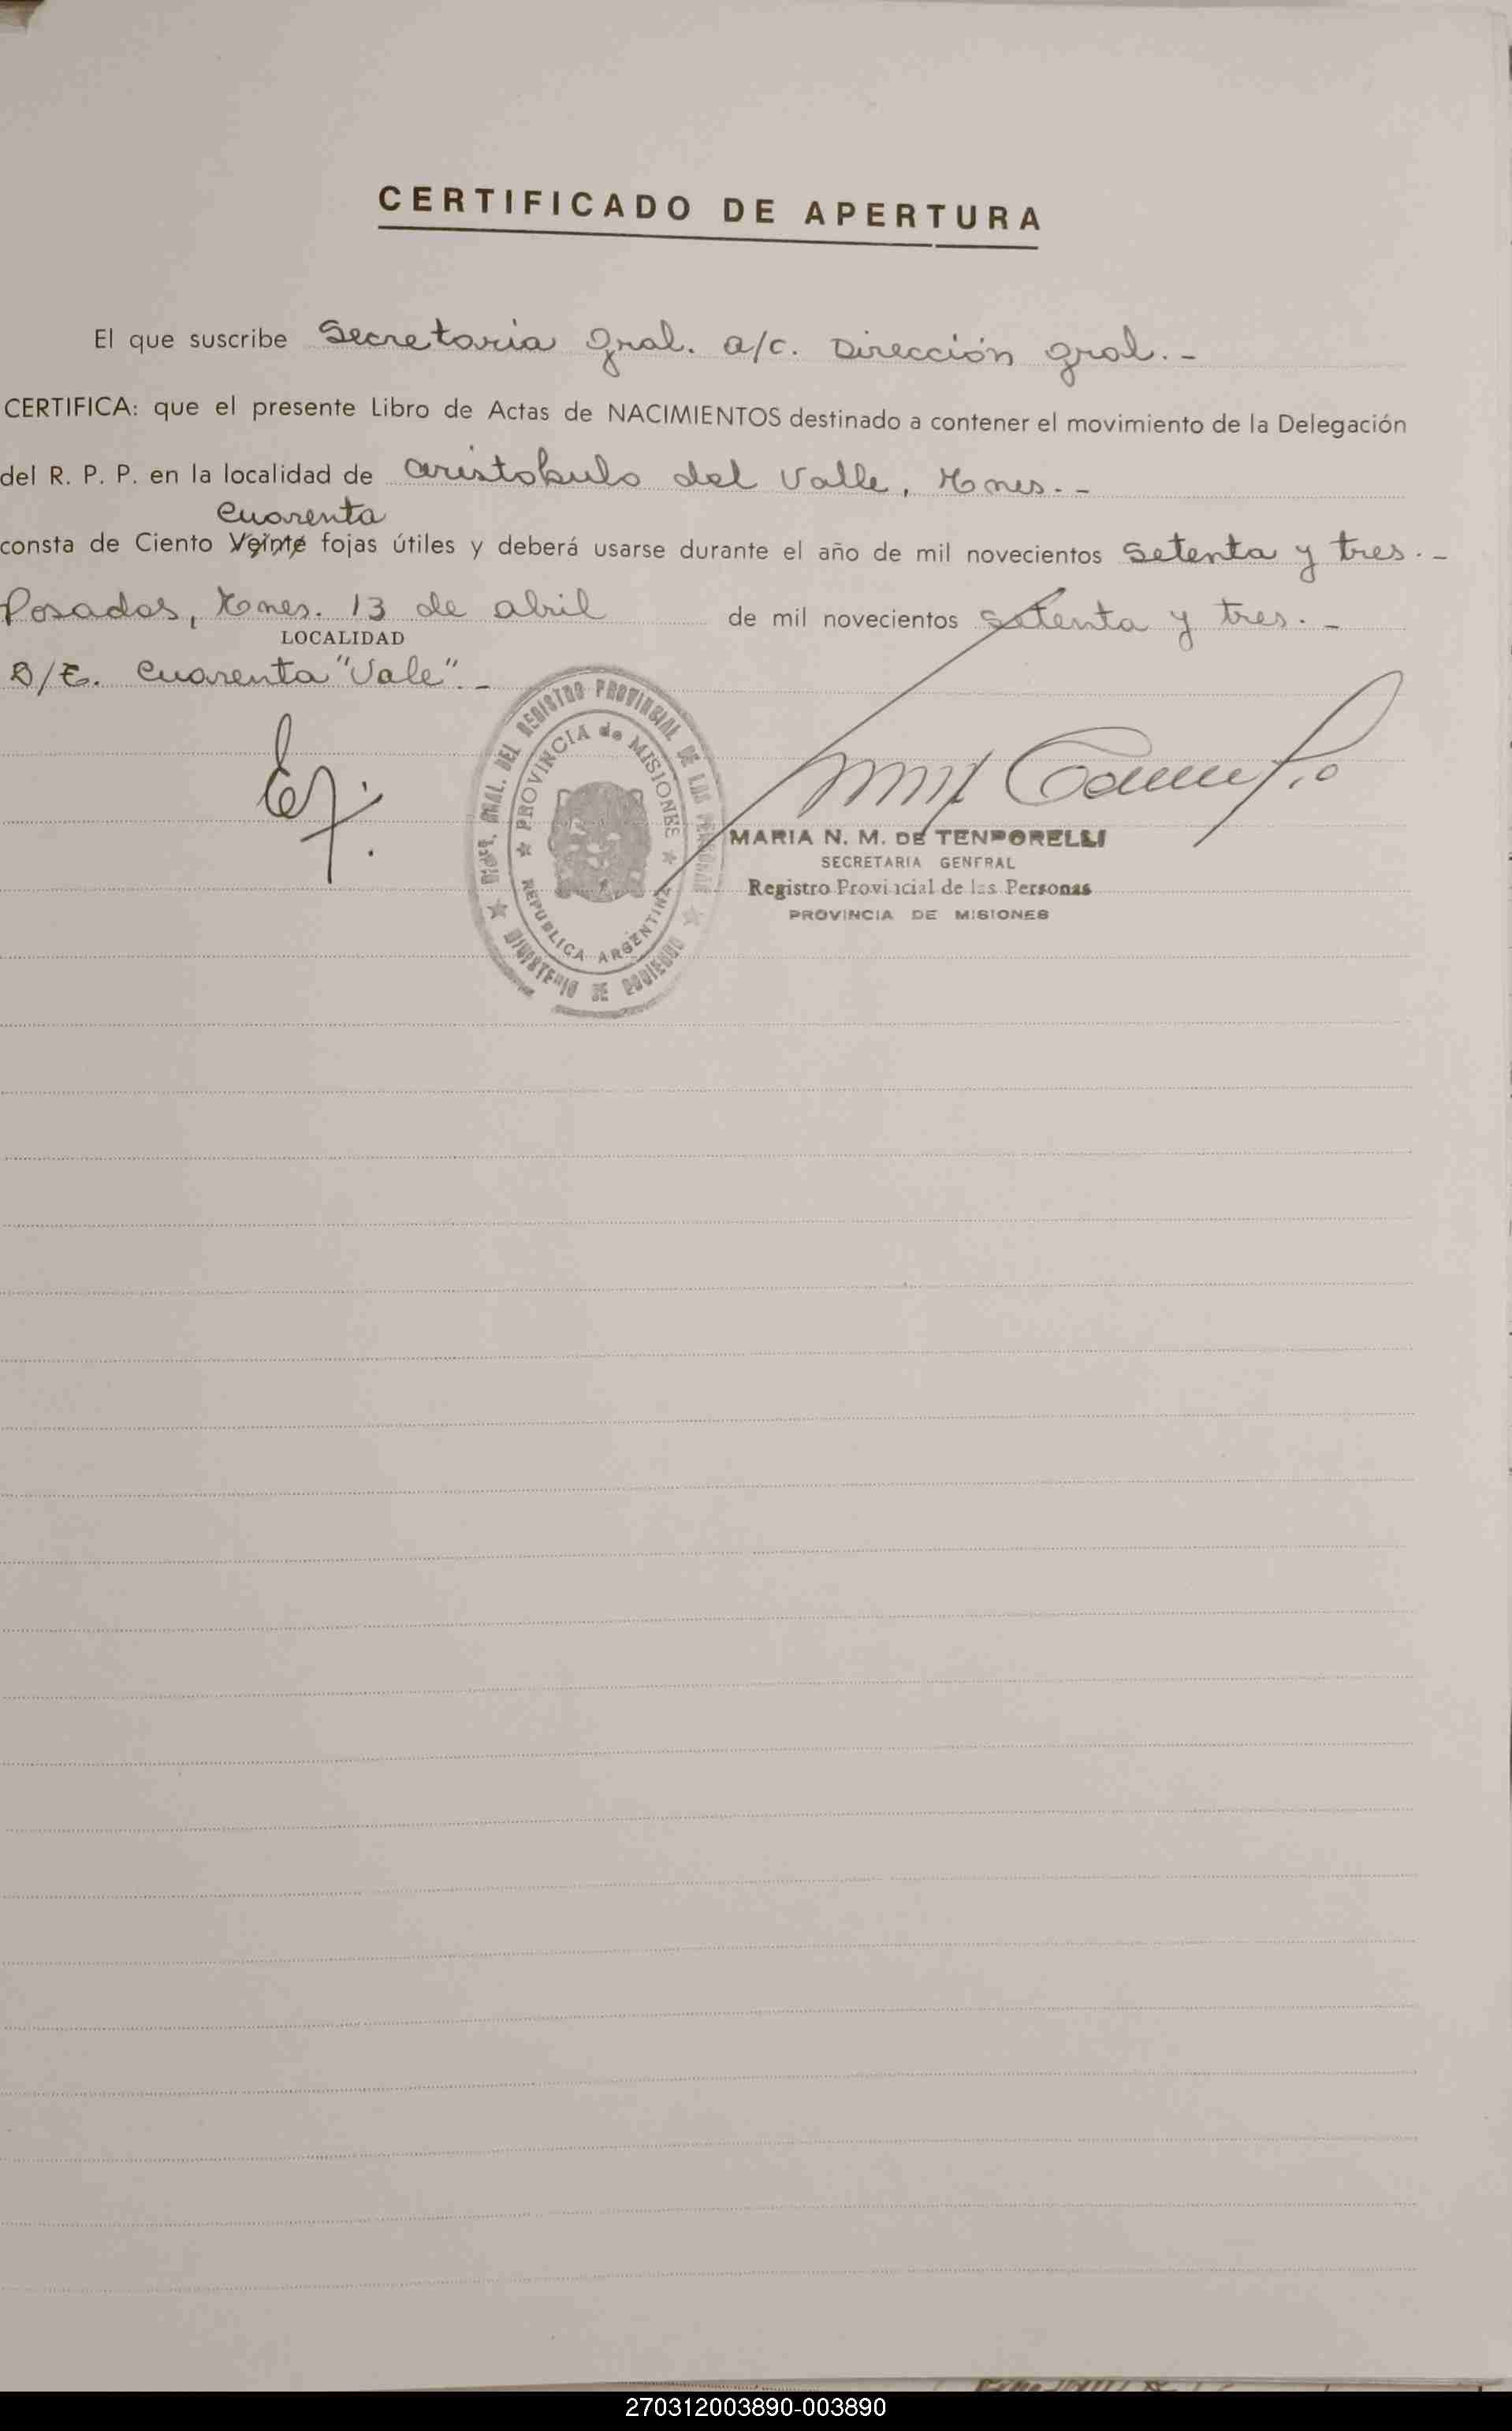 CERTIFICADO DE APERTURA
El que suscribe Secretaria Gral. a/c. Dirección Gral.-
CERTIFICA: que el presente Libro de Actas de NACIMIENTOS destinado a contener el movimiento de la Delegación
del R. P. P. en la localidad de Aristobulo del Valle, Mnes.-
Cuarenta
consta de Ciento Veinte fojas útiles y deberá usarse durante el año de mil novecientos Setenta y tres.-
Posadas, Mnes. 13 de abril de mil novecientos Setenta y tres.-
LOCALIDAD
S/E. Cuarenta "Vale".-
DIREC. GRAL. DEL REGISTRO PROVINCIAL DE LAS PERSONAS
PROVINCIA de MISIONES
REPUBLICA ARGENTINA
MINISTERIO DE GOBIERNO
MARIA N. M. DE TENPORELLI
SECRETARIA GENERAL
Registro Provincial de las Personas
PROVINCIA DE MISIONES
270312003890-003890